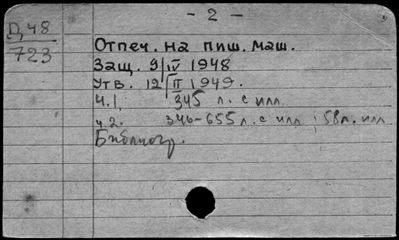 - 2 -
Д48
723
Отпеч. на пиш. маш.
Защ. 9/IV 1948
Утв. 12/II 1949.
ч.1. 345 л. с илл.
ч.2. 346-655 л. с илл; 58л. илл
Библиогр.